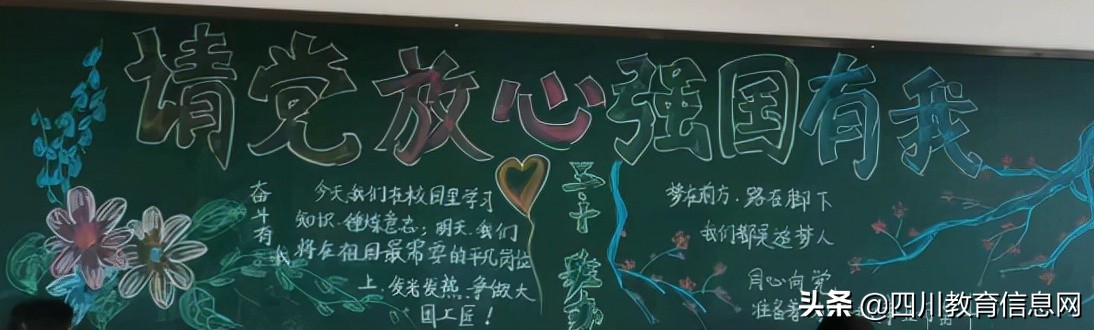 请党放心强国有我
奋斗有我
今天我们在校园里学习
知识、锤炼意志；明天，我们
将在祖国最需要的平凡岗位
上，发光发热，争做大
国工匠！
梦在前方，路在脚下
我们都是追梦人
月心向党
准备着
头条 @四川教育信息网